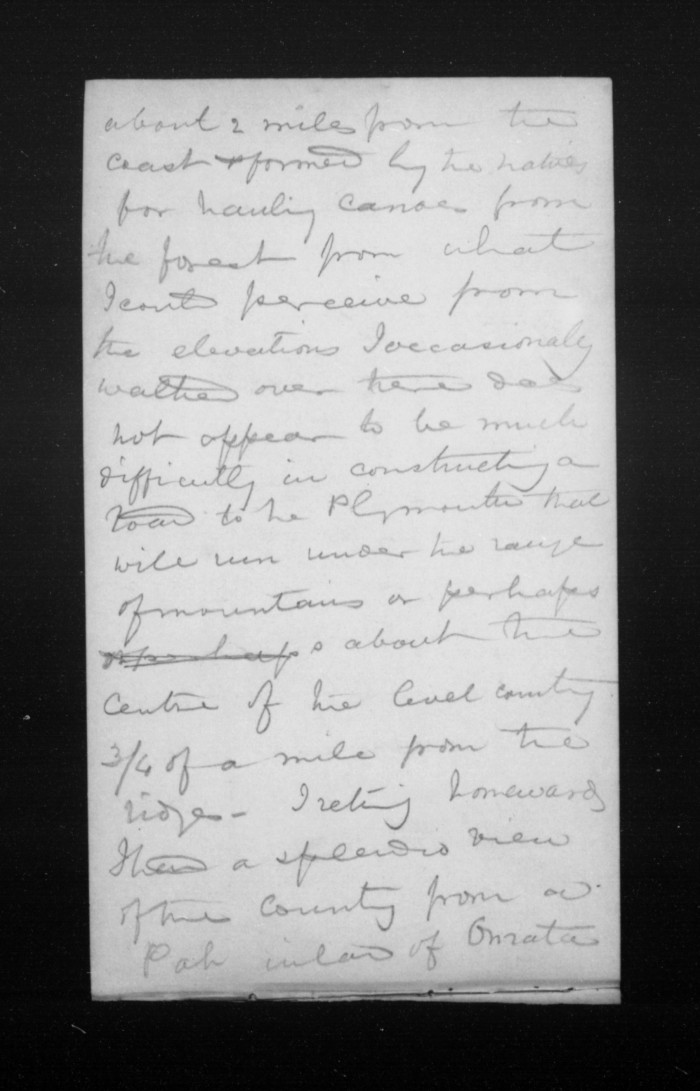 about 2 miles from the
coast & formed by the natives
for hauling canoes from
the forest from what
I could perceive from
the elevations I occasionally
walked over there does
not appear to be much
difficulty in constructing a
road to the Plymouth that
will run under the range
of mountains or perhaps
or perhaps about the
centre of the level country
3/4 of a mile from the
ridges - I homewards
I had a splendid view
of the country from a
Pah inland of Onrata